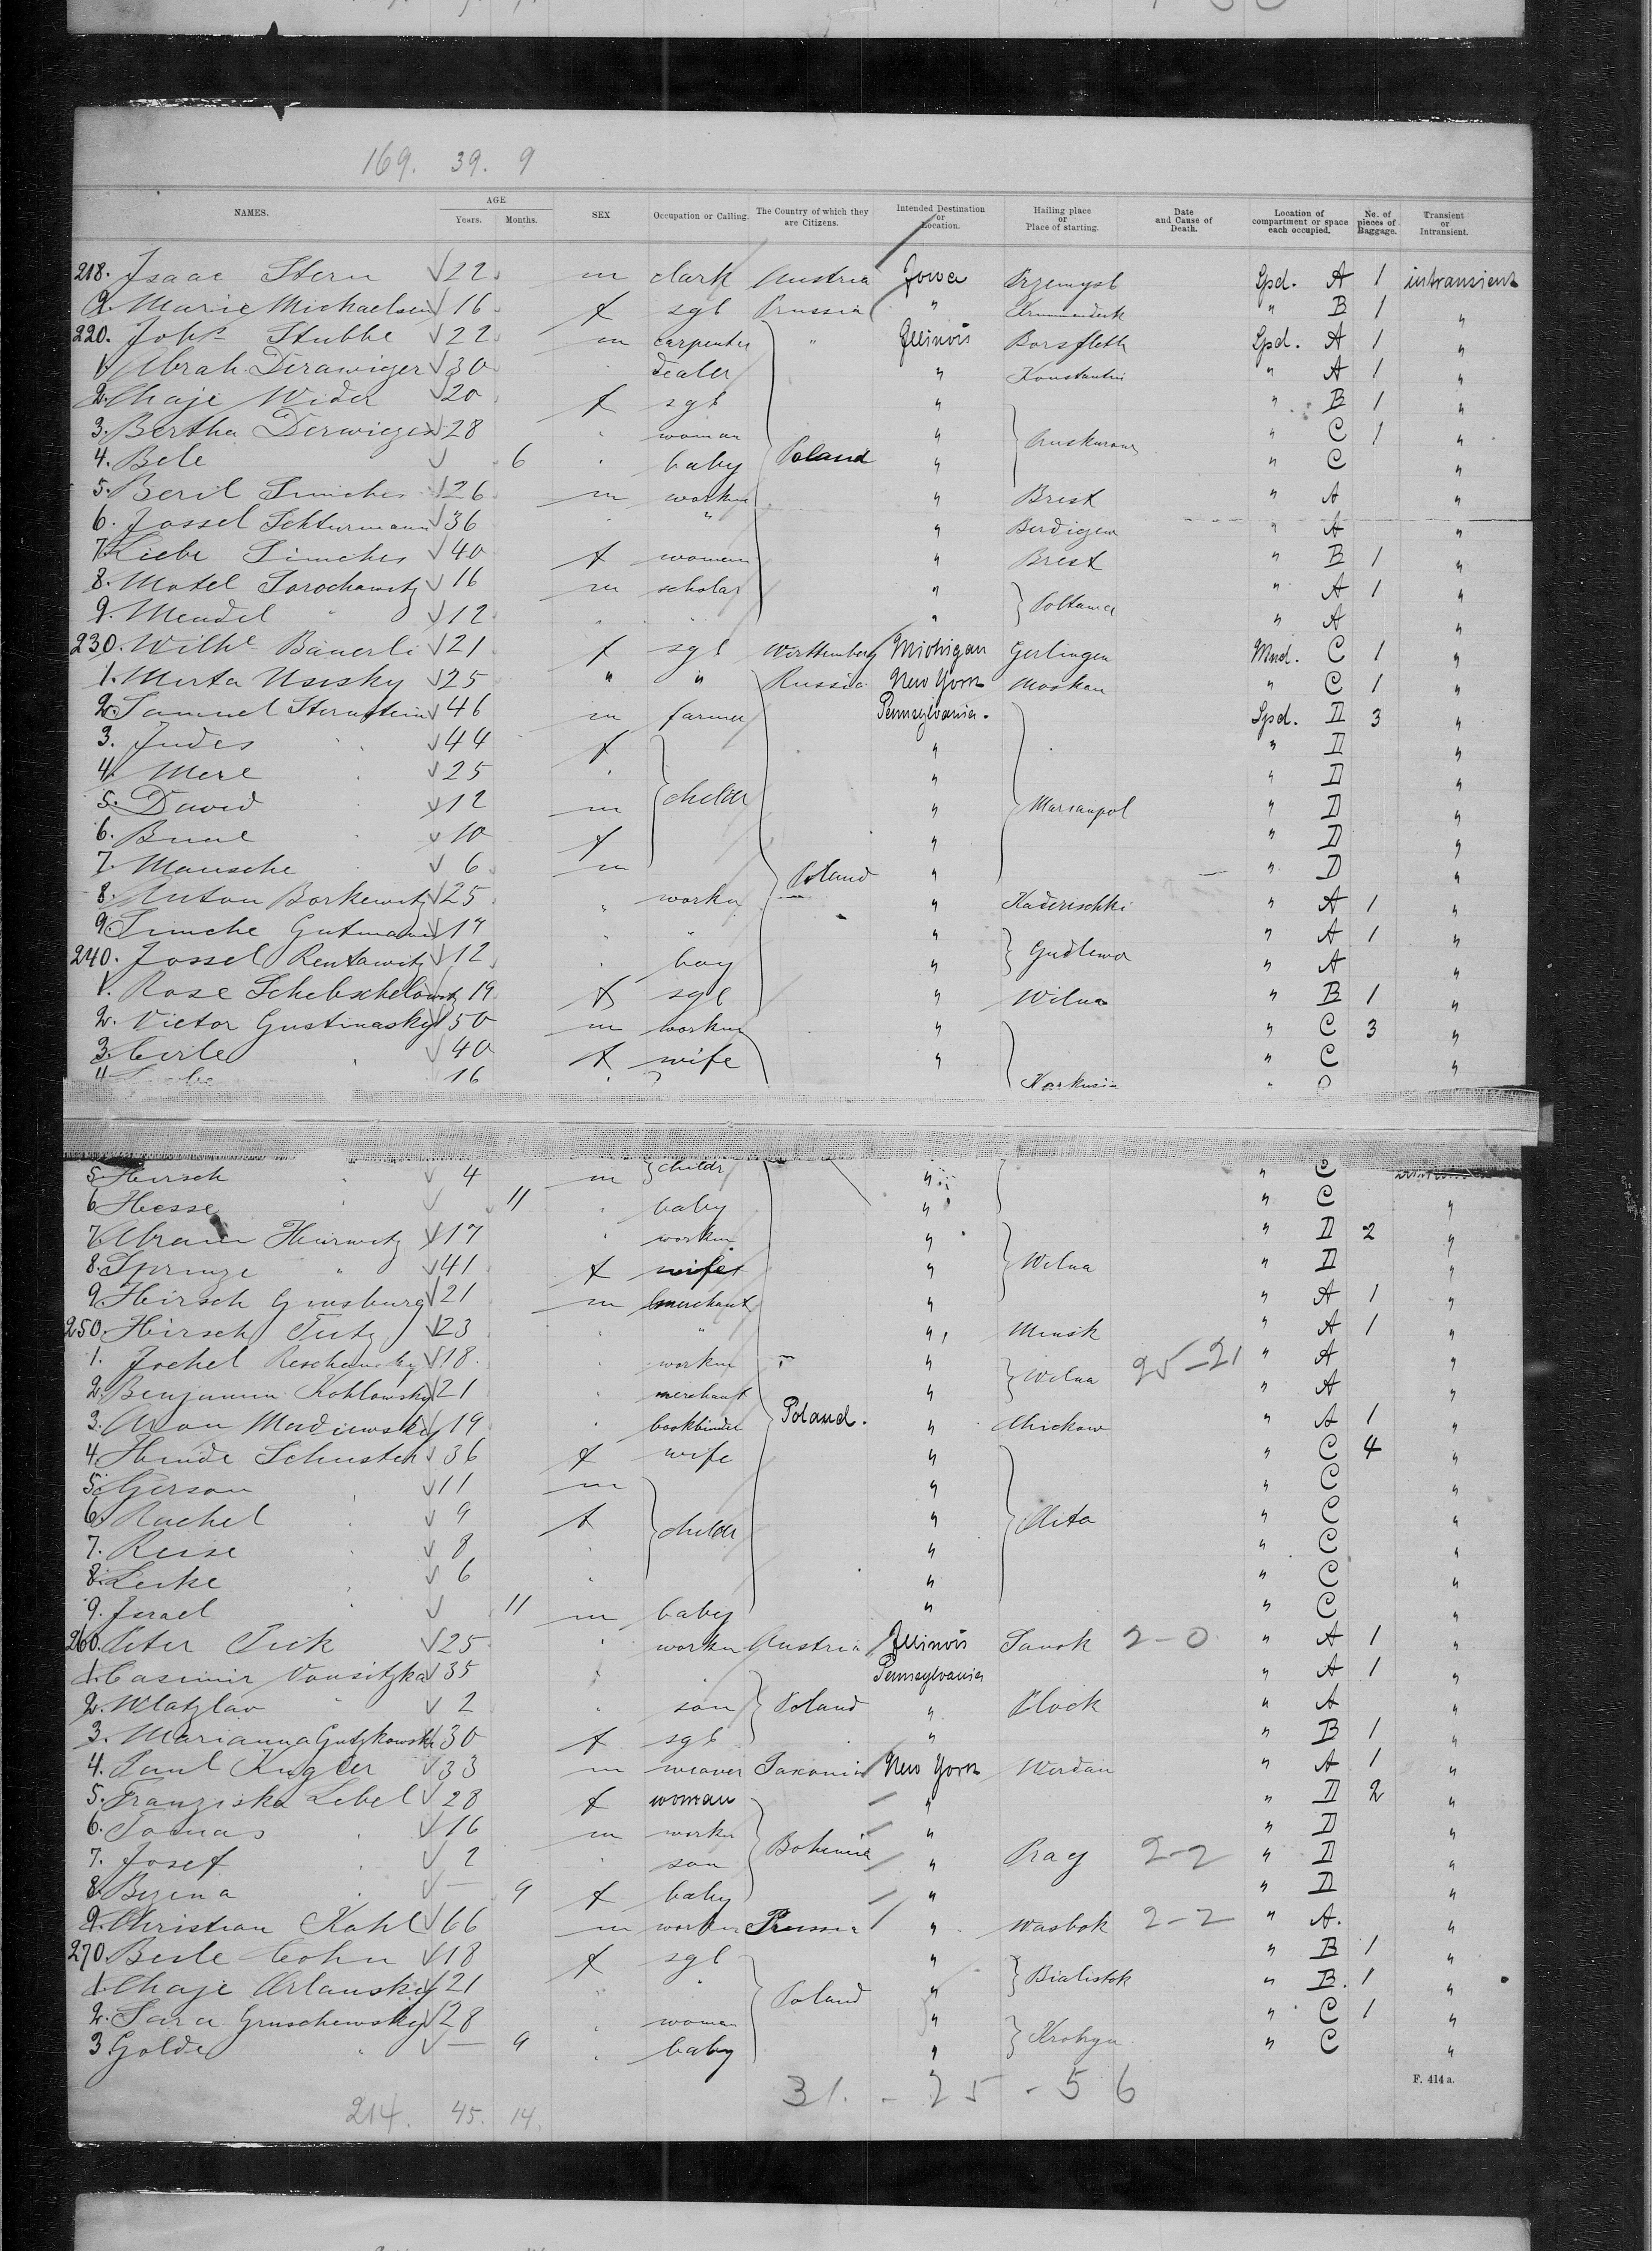 169. 39. 9
NAMES. AGE Years. Months. SEX Occupation or Calling. The Country of which they are Citizens. Intended Destination or Location. Hailing place or Place of starting. Date and Cause of Death. Location of compartment or space each occupied. No. of pieces of Baggage. Transient or Intransient.
218. Isaac Stern √ 22 m clark Austria Iowa Przemysl Spd. A 1 intransient
9. Marie Michaelsen √ 16 f sgl Prussia " " B 1 "
220. Johs Stubbe √ 22 m carpenter " Illinois Borsfleth Spd. A 1 "
1. Abrah. Derawiger √ 30 " dealer " Konstantin " A 1 "
2. Chaje Wider √ 20 f sgl " " B 1 "
3. Bertha Derwieger √ 28 " woman " " C 1 "
4. Bele √ 6 " baby Poland " " C "
5. Beril Simches √ 26 m worker " Brest " A "
6. Jossel Schturmann √ 36 " " " " A "
7. Liebe Simches √ 40 f woman " Brest " B 1 "
8. Motel Sorochowitz √ 16 m scholar " " A 1 "
9. Mendel " √ 12 " " " Poltawa " A "
230. Wilhe Bäuerli √ 21 f sgl Württemberg Michigan Gerlingen Mnd. C 1 "
1. Merta Ususky √ 25 " " Russia New York Moskau " C 1 "
2. Samuel Sternstein √ 46 m farmer Pennsylvania. Spd. D 3 "
3. Judes " √ 44 f " " D "
4. Mere " √ 25 " " " D "
5. David √ 12 m childr " Mariampol " D "
6. Bune √ 10 f " " D "
7. Mausche √ 6 m " " D "
8. Anton Borkewitz √ 25 " worker Poland " Kaderischki " A 1 "
9. Simche Gutmann √ 17 " " " " A 1 "
240. Jossel Rentawitz √ 12 " boy " Gudlewo " A "
1. Rose Schebschelowitz 19 f sgl " Wilna " B 1 "
2. Victor Gustinasky √ 50 m worker " " C 3 "
3. Cirle " √ 40 f wife " " C "
4. 16 "
5. Hirsch " √ 4 m childr " " C
6. Hesse √ 11 " baby " " C "
7. Abram Hurwitz √ 17 " worker " " D 2 "
8. Sprinze " √ 41 f wife " Wilna " D "
9. Hirsch Ginsburg √ 21 m merchant " " A 1 "
250. Hirsch Tutz √ 23 " " " Minsk " A 1 "
1. Jochel √ 18 " worker " Wilna 25-21 " A "
2. Benjamin Kohlowsky √ 21 " merchant " " A "
3. Aron Madiewsky √ 19 " bookbinder Poland. " " A 1 "
4. Hinde Schuster √ 36 f wife " " C 4 "
5. Gerson " √ 11 m " " C "
6. Rachel " √ 9 f childr " Olita " C "
7. Reise " √ 8 " " " C "
8. Leike " √ 6 " " " C "
9. Israel " √ 11 m baby " " C "
260. Peter Pick √ 25 " worker Austria Illinois Sanok 2-0 " A 1 "
1. Casimir Vonsitzka √ 35 " " Pennsylvania " A 1 "
2. Wlatzlav " √ 2 " son Poland " Plock " A "
3. Marianna Gutzkowska √ 30 f sgl " " B 1 "
4. Paul Kugler √ 33 m weaver Saxonia New York Werdau " A 1 "
5. Franziska Lebel √ 28 f woman " " D 2 "
6. Tomas " √ 16 m worker " " D "
7. Josef √ 2 " son Bohemia " Prag 2-2 " D "
8. Bozena √ — 9 f baby " " D "
9. Christian Kahl √ 66 m worker Prussia " Wasbek 2-2 " A. "
270. Beile Cohn √ 18 f sgl " " B 1 "
1. Chaje Orlansky √ 21 " " " Bialistok " B. 1 "
2. Sara Gruschewsky √ 28 " woman Poland " " C 1 "
3 Golde " √ — 9 " baby " " C "
31. - 25 - 56
F. 414 a.
214. 45. 14.